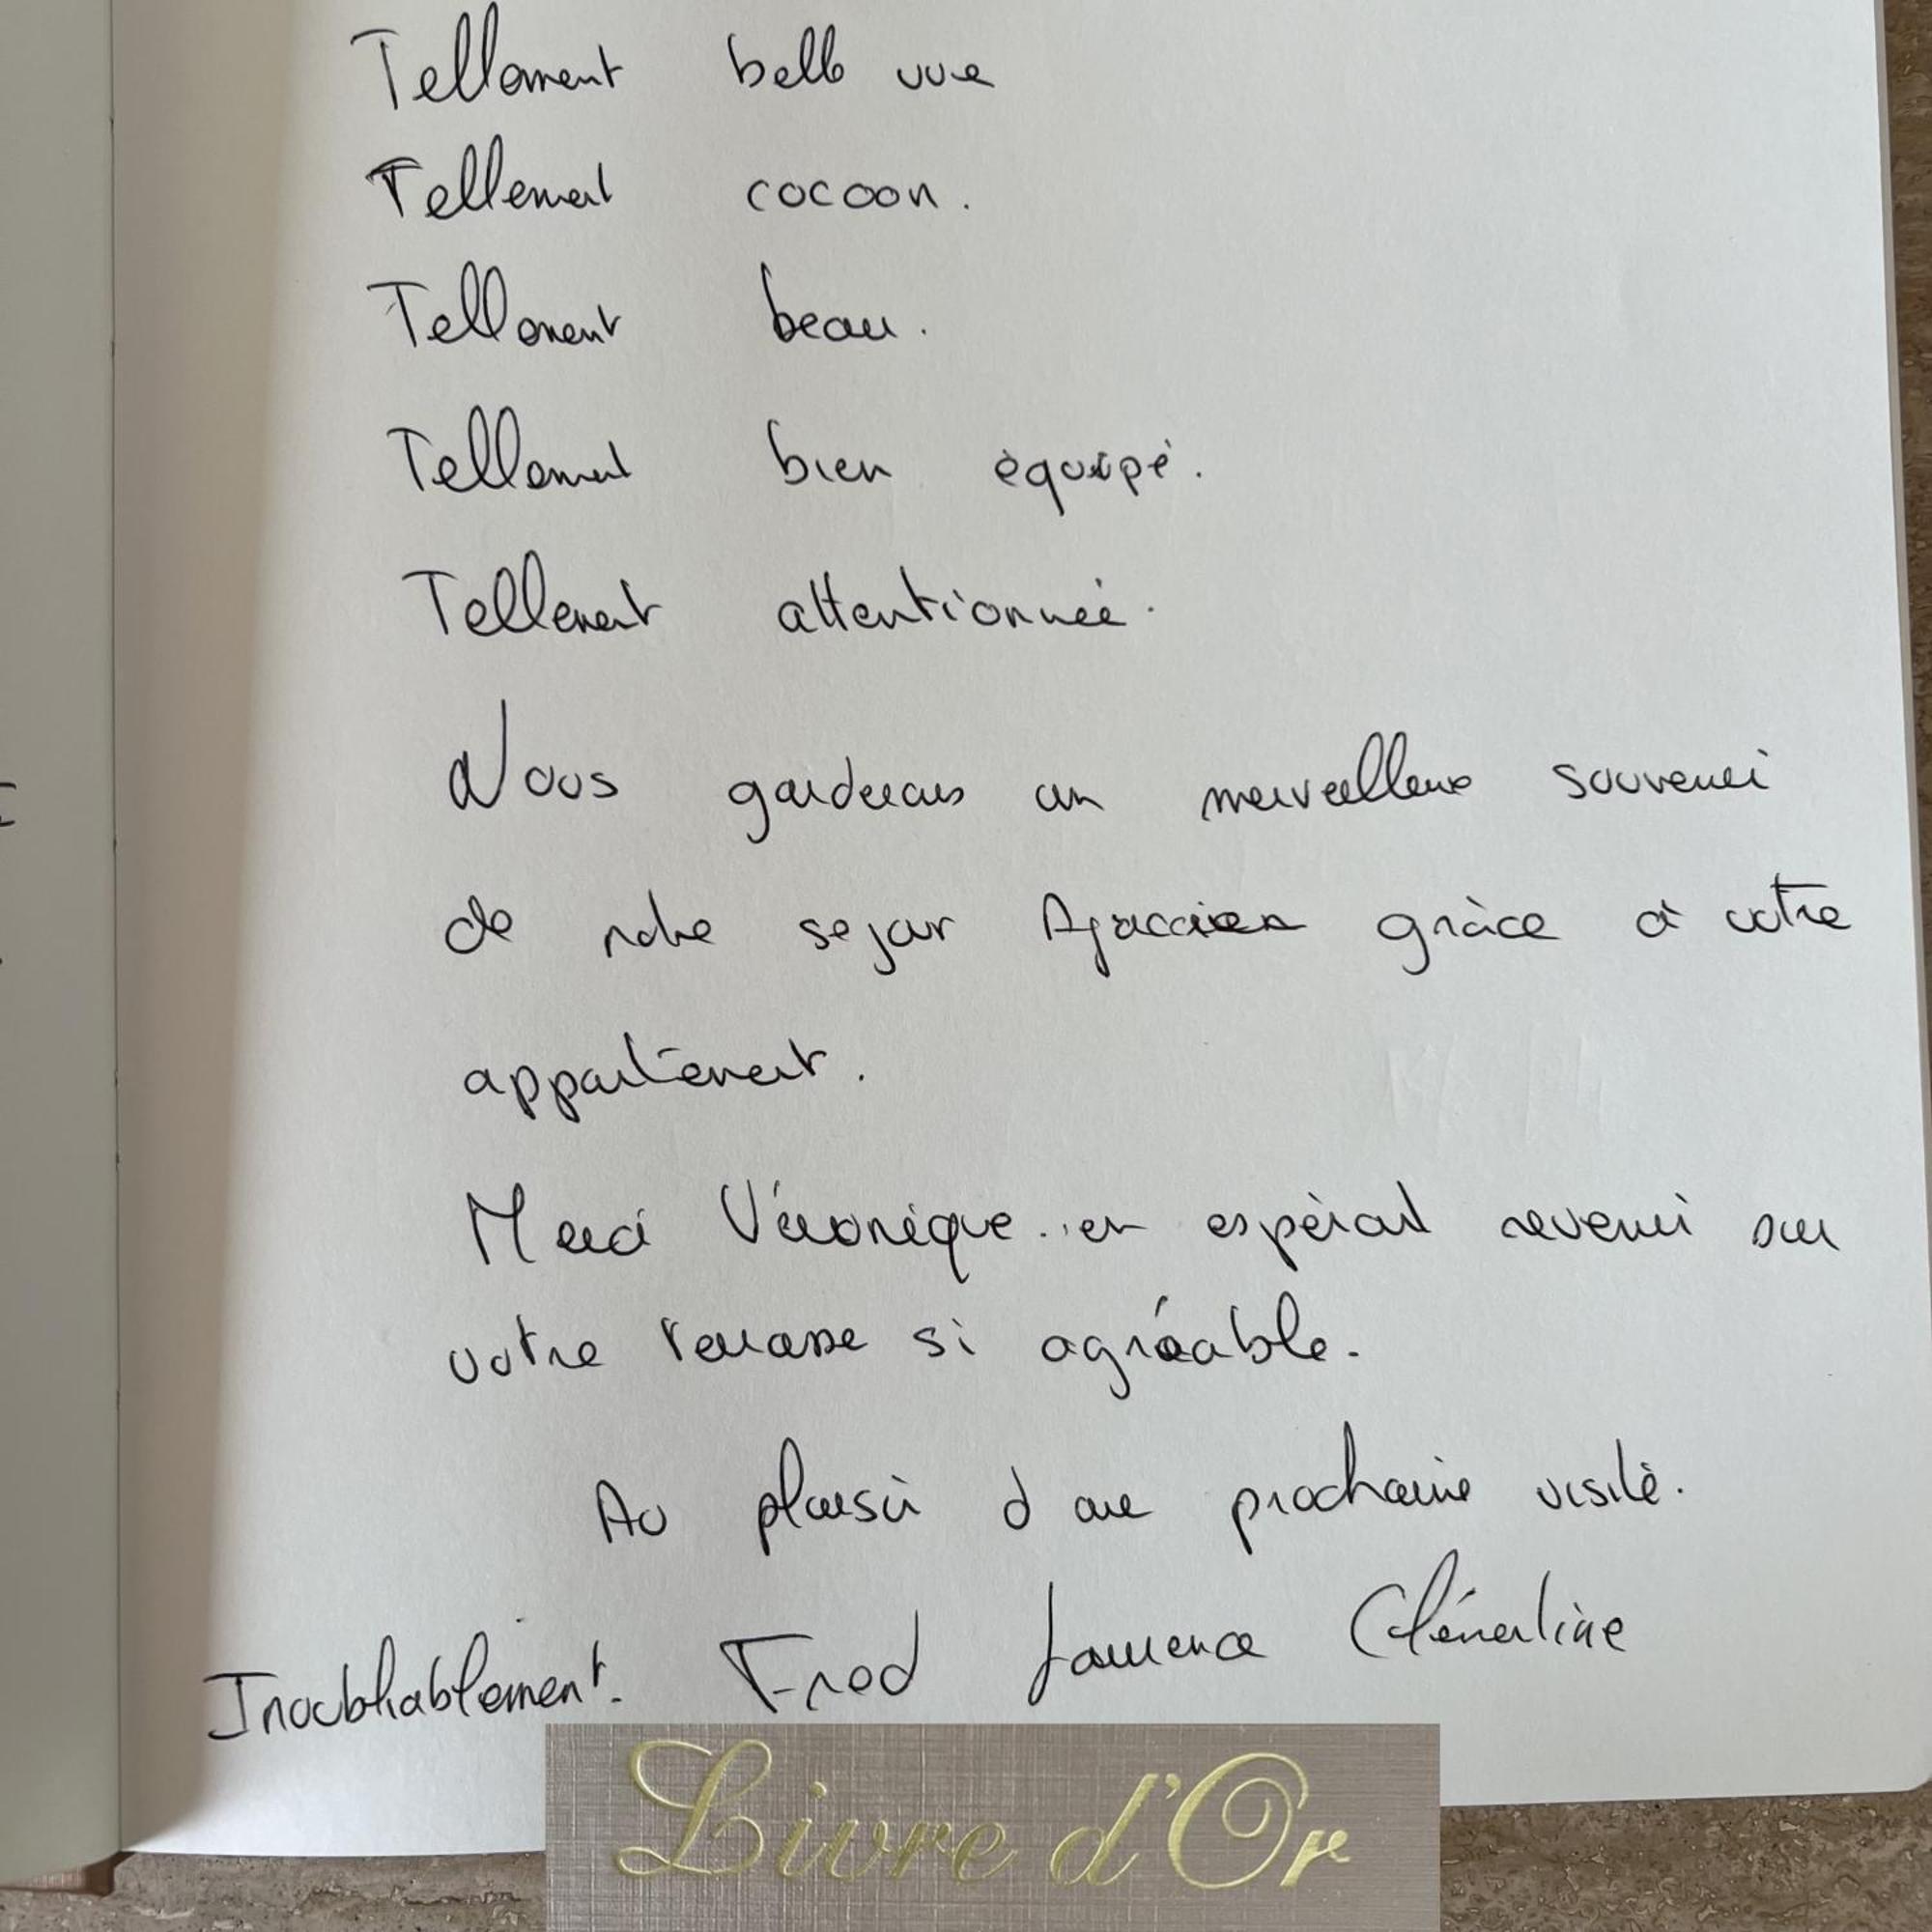 Tellement belle vue
Tellement cocoon.
Tellement beau.
Tellement bien équipé.
Tellement attentionnée.
Nous garderons un merveilleux souvenir
de notre sejour Ajaccien grâce à votre
appartement.
Merci Véronique.. en espérant revenir sur
votre terrasse si agréable.
Au plaisir d une prochaine visite.
Inoubliablement. Fred Laurence Clémentine
Livre d'Or